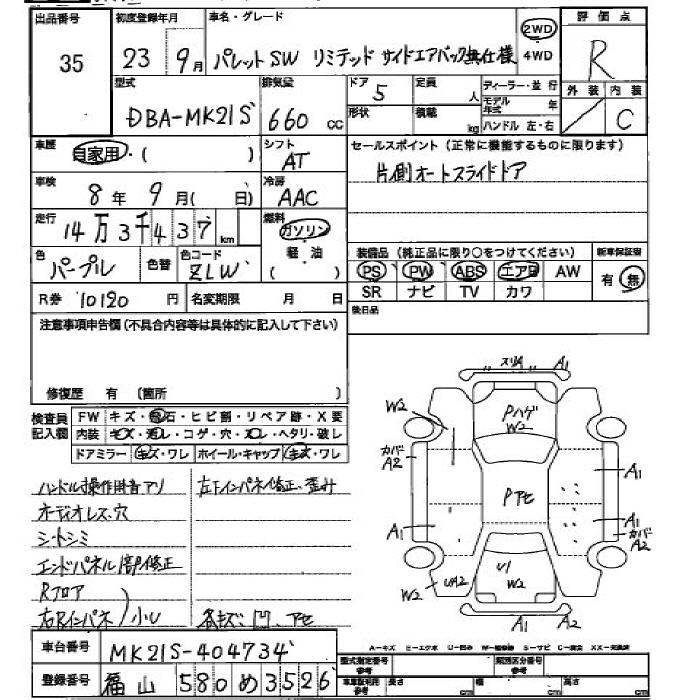 出品番号 初度登録年月 車名・グレード 2WD 評価点
35 23 9月 パレットSW リミテッド サイドエアバック無仕様 4WD R
型式 排気量 ドア 5 定員 人 ディーラー・並行 外装 内装
DBA-MK21S 660 cc 形状 積載 kg モデル年式 年 C
ハンドル 左・右
車歴 自家用・( ) シフト AT セールスポイント(正常に機能するものに限ります)
車検 8年 9月( 日) 冷房 AAC 片側オートスライドドア
走行 14万3千437km 燃料 ガソリン
軽油
( )
色 パープル 色替 色コード ZLW 装備品(純正品に限り○をつけてください) 新車保証書
PS PW ABS エアB AW 有・無
R券 10120円 名変期限 月 日 SR ナビ TV カワ
後日品
注意事項申告欄(不具合内容等は具体的に記入して下さい)
修復歴 有 (箇所 )
検査員記入欄 FW キズ・飛石・ヒビ割・リペア跡・X要
内装 キズ・汚レ・コゲ・穴・スレ・ヘタリ・破レ
ドアミラー キズ・ワレ ホイール・キャップ キズ・ワレ
ハンドル操作用音アリ 左下インパネイ修正、歪み
オーディオレス・穴
シートシミ
エンドパネル1部修正
Rフロア
右Rインパネ 小U 各キズ、凹、アセ
スリA A1
W2 Pハゲ W2
カバA2 A1
Pアセ
A1 A1 カバA2
UA2 U1 W2 W2
A1 A2
A-キズ E-エクボ U-凹み W-補修跡 S-サビ C-腐食 XX-交換済
車台番号 MK21S-404734
型式指定番号 参考 類別区分番号 参考
登録番号 福山 580 め 3526
車庫証明用 参考 長さ cm 幅 cm 高さ cm